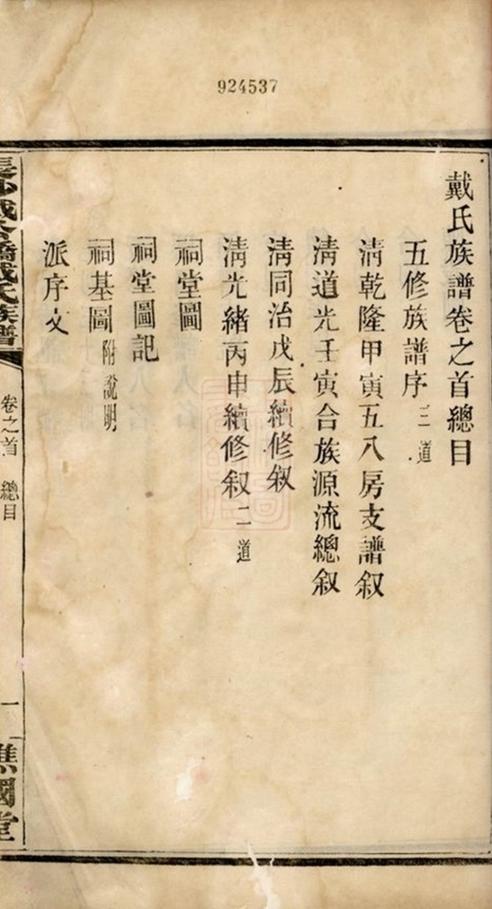 924537
戴氏族譜卷之首總目
五修族譜序三道
清乾隆甲寅五八房支譜叙
清道光壬寅合族源流總叙
清同治戊辰續修叙
清光緒丙申續修叙二道
祠堂圖
祠堂圖記
祠基圖附說明
派序文
戴氏族譜
卷之首
總目
一
譙國堂